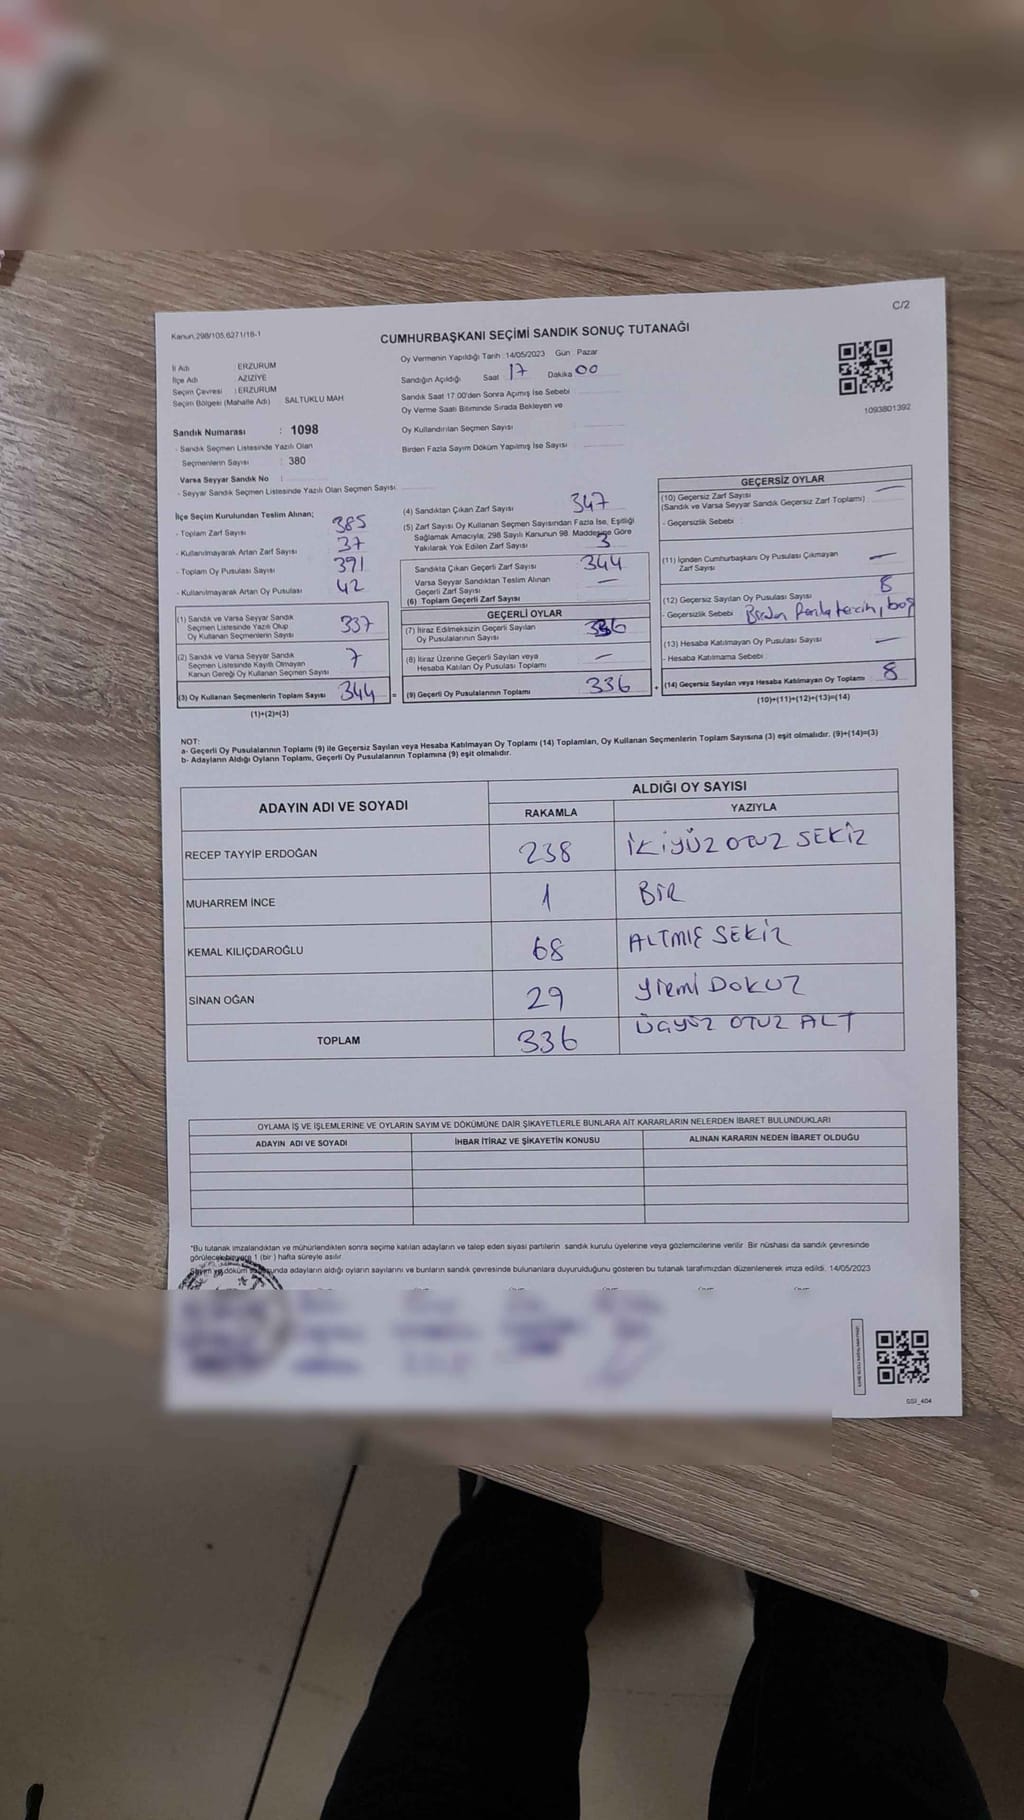 Kanun.298/105,6271/18-1
C/2
CUMHURBAŞKANI SEÇİMİ SANDIK SONUÇ TUTANAĞI
İl Adı ERZURUM
İlçe Adı AZİZİYE
Seçim Çevresi : ERZURUM
Seçim Bölgesi (Mahalle Adı) SALTUKLU MAH
Sandık Numarası : 1098
- Sandık Seçmen Listesinde Yazılı Olan
Seçmenlerin Sayısı : 380
Varsa Seyyar Sandık No :
- Seyyar Sandık Seçmen Listesinde Yazılı Olan Seçmen Sayısı
Oy Vermenin Yapıldığı Tarih : 14/05/2023 Gün : Pazar
Sandığın Açıldığı Saat 17 Dakika 00
Sandık Saat 17.00'den Sonra Açımış İse Sebebi
Oy Verme Saati Bitiminde Sırada Bekleyen ve
Oy Kullandırılan Seçmen Sayısı
Birden Fazla Sayım Döküm Yapılmış İse Sayısı
1093801392
İlçe Seçim Kurulundan Teslim Alınan;
- Toplam Zarf Sayısı 385
- Kullanılmayarak Artan Zarf Sayısı 37
- Toplam Oy Pusulası Sayısı 391
- Kullanılmayarak Artan Oy Pusulası 42
(1) Sandık ve Varsa Seyyar Sandık
Seçmen Listesinde Yazılı Olup
Oy Kullanan Seçmenlerin Sayısı 337
(2) Sandık ve Varsa Seyyar Sandık
Seçmen Listesinde Kayıtlı Olmayan
Kanun Gereği Oy Kullanan Seçmen Sayısı 7
(3) Oy Kullanan Seçmenlerin Toplam Sayısı 344 =
(1)+(2)=(3)
(4) Sandıktan Çıkan Zarf Sayısı 347
(5) Zarf Sayısı Oy Kullanan Seçmen Sayısından Fazla İse, Eşitliği
Sağlamak Amacıyla; 298 Sayılı Kanunun 98. Maddesine Göre
Yakılarak Yok Edilen Zarf Sayısı 3
Sandıkta Çıkan Geçerli Zarf Sayısı 344
Varsa Seyyar Sandıktan Teslim Alınan
Geçerli Zarf Sayısı —
(6) Toplam Geçerli Zarf Sayısı
GEÇERLİ OYLAR
(7) İtiraz Edilmeksizin Geçerli Sayılan
Oy Pusulalarının Sayısı 336
(8) İtiraz Üzerine Geçerli Sayılan veya
Hesaba Katılan Oy Pusulası Toplamı —
(9) Geçerli Oy Pusulalarının Toplamı 336 +
GEÇERSİZ OYLAR
(10) Geçersiz Zarf Sayısı —
(Sandık ve Varsa Seyyar Sandık Geçersiz Zarf Toplamı)
- Geçersizlik Sebebi :
(11) İçinden Cumhurbaşkanı Oy Pusulası Çıkmayan
Zarf Sayısı —
(12) Geçersiz Sayılan Oy Pusulası Sayısı 8
- Geçersizlik Sebebi Birden fazla tercih, boş
(13) Hesaba Katılmayan Oy Pusulası Sayısı —
- Hesaba Katılmama Sebebi :
(14) Geçersiz Sayılan veya Hesaba Katılmayan Oy Toplamı 8
(10)+(11)+(12)+(13)=(14)
NOT:
a- Geçerli Oy Pusulalarının Toplamı (9) ile Geçersiz Sayılan veya Hesaba Katılmayan Oy Toplamı (14) Toplamları, Oy Kullanan Seçmenlerin Toplam Sayısına (3) eşit olmalıdır. (9)+(14)=(3)
b- Adayların Aldığı Oyların Toplamı, Geçerli Oy Pusulalarının Toplamına (9) eşit olmalıdır.
ADAYIN ADI VE SOYADI
ALDIĞI OY SAYISI
RAKAMLA YAZIYLA
RECEP TAYYİP ERDOĞAN 238 İKİYÜZ OTUZ SEKİZ
MUHARREM İNCE 1 BİR
KEMAL KILIÇDAROĞLU 68 ALTMIŞ SEKİZ
SİNAN OĞAN 29 YİRMİ DOKUZ
TOPLAM 336 ÜÇYÜZ OTUZ ALT
OYLAMA İŞ VE İŞLEMLERİNE VE OYLARIN SAYIM VE DÖKÜMÜNE DAİR ŞİKAYETLERLE BUNLARA AİT KARARLARIN NELERDEN İBARET BULUNDUKLARI
ADAYIN ADI VE SOYADI İHBAR İTİRAZ VE ŞİKAYETİN KONUSU ALINAN KARARIN NEDEN İBARET OLDUĞU
"Bu tutanak imzalandıktan ve mühürlendikten sonra seçime katılan adayların ve talep eden siyasi partilerin sandık kurulu üyelerine veya gözlemcilerine verilir. Bir nüshası da sandık çevresinde
görülecek bir yere 1 (bir ) hafta süreyle asılır.
Sayım ve döküm sonunda adayların aldığı oyların sayılarını ve bunların sandık çevresinde bulunanlara duyurulduğunu gösteren bu tutanak tarafımızdan düzenlenerek imza edildi. 14/05/2023
SSI_404